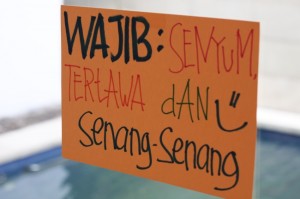 WAJIB: SENYUM,
TERTAWA dAN
Senang-Senang